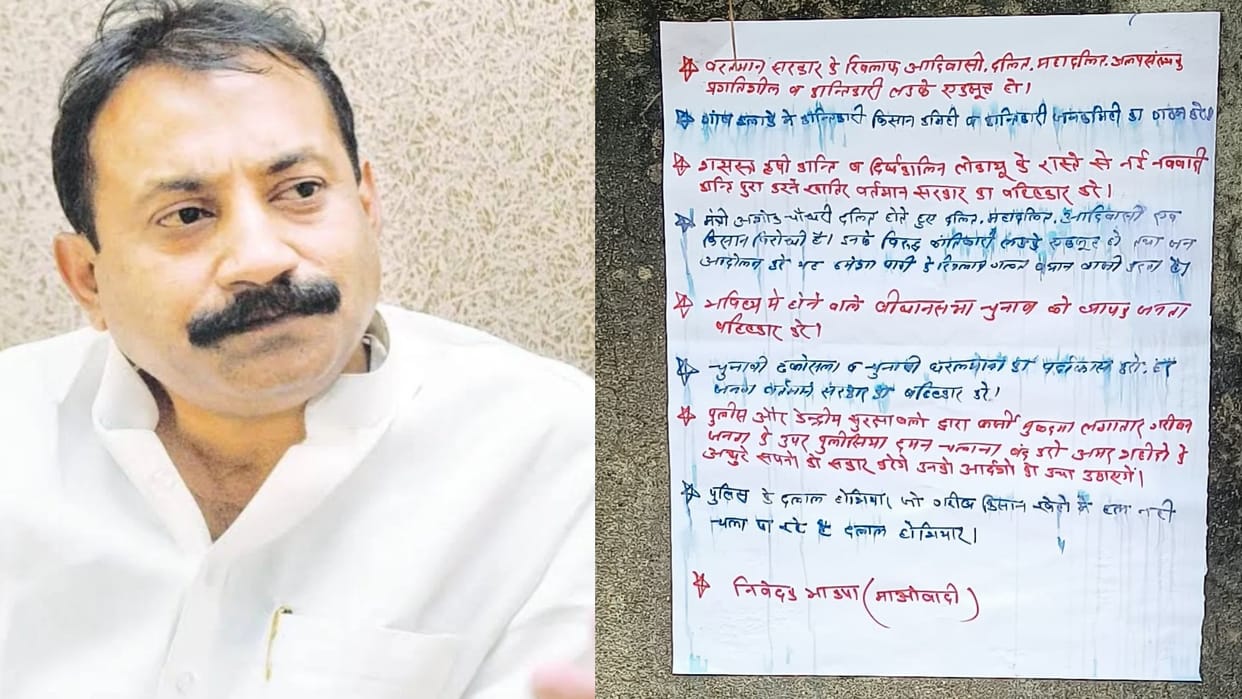 ☆ वरतमान सरकार के खिलाफ आदिवासी, दलित, महादलित, अल्पसंख्यक
प्रगतिशील व क्रान्तिकारी लडाके एकजूट हो।
☆ में क्रान्तिकारी किसान कमिटी व क्रान्तिकारी जनकमिटी का गठन करे।
☆ कृषी क्रान्ति व दिर्घकालिन लोकयुध के रास्ते से नई
क्रान्ति पुरा करने खातिर वर्तमान सरकार का बहिष्कार करे।
☆ मंत्री अशोक चौधरी दलित होते हुए दलित, महादलित, आदिवासी एव
किसान विरोधी है। उनके विरुद्ध क्रांतिकारी लडाके एकजूट हो तथा जन
आन्दोलन करे यह हमेशा पार्टी के खिलाफ गलत बयान बाजी करता है।
☆ भविष्य मे होने वाले वीधानसभा चुनाव को व्यापक जनता
बहिष्कार करे।
☆ चुनावी ढकोसला व चुनावी का करो,
जनता वर्तमान सरकार का बहिष्कार करे।
☆ पुलीस और केन्द्रीय द्वारा फर्जी मुकदमा लगातार गरीब
जनता के उपर पुलीसिया दमन चलाना बंद करो अमर शहीदो के
अधुरे सपनो को सकार करेगे उनको आदर्शो को उचा उठाएगें।
☆ पुलिस के दलाल होशियार जो गरीब किसान खेतो में हल नही
चला पा रहे है दलाल होशियार।
☆ निवेदक भाकपा (माओवादी)